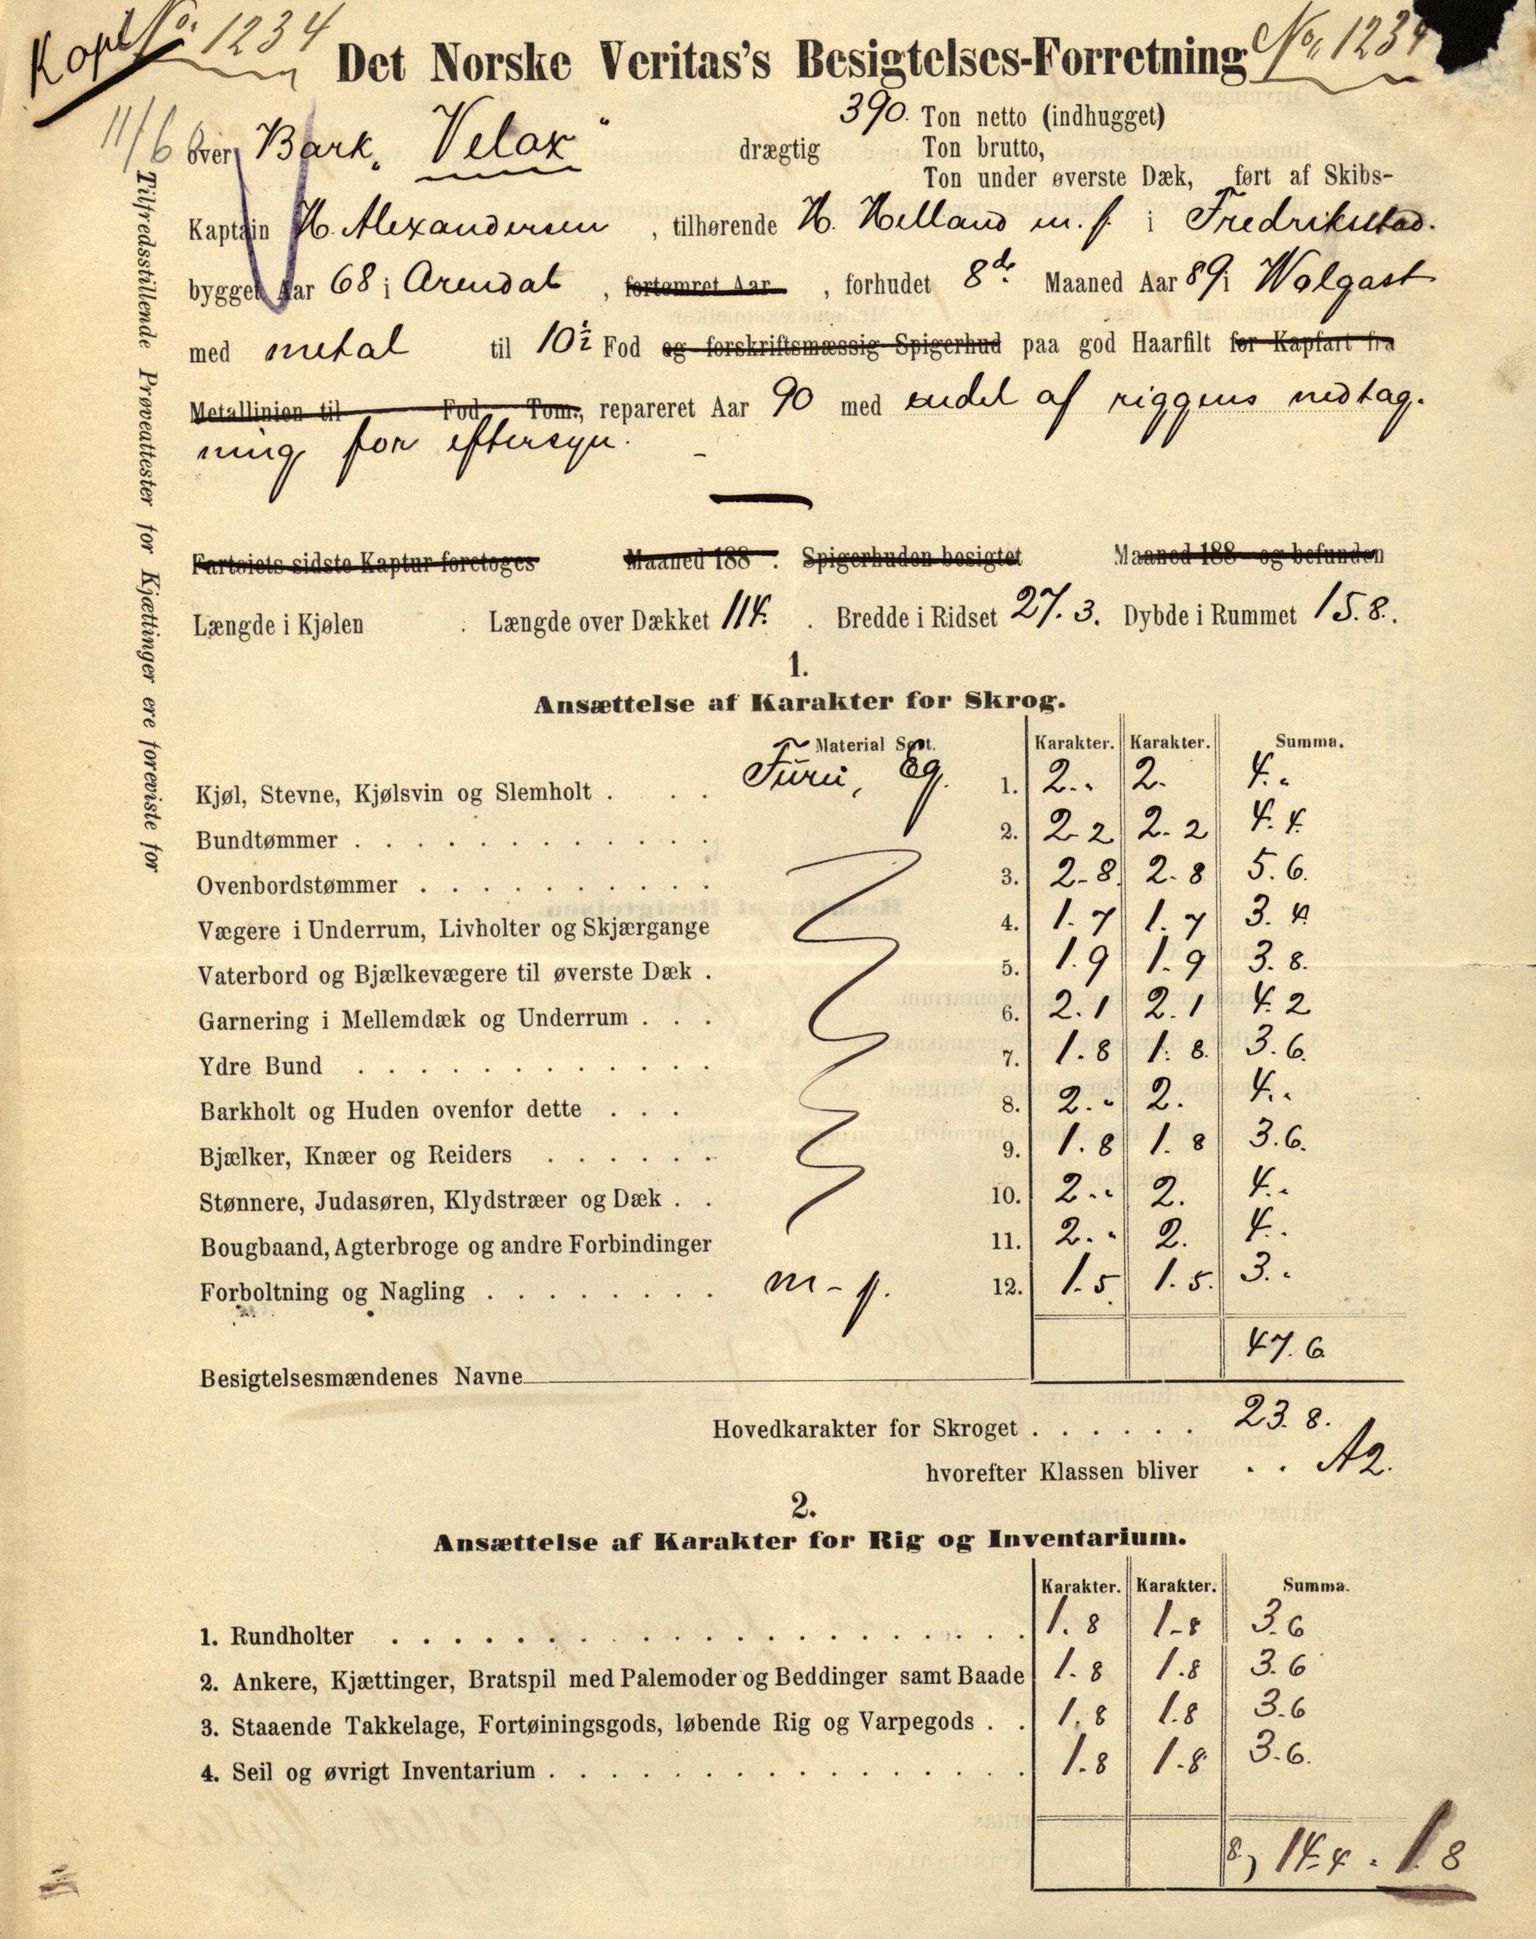 Kapt No. 1234
Det Norske Veritas's Besigtelses-Forretning No. 1234
11/6
over Bark „Velox“ drægtig 390. Ton netto (indhugget)
Ton brutto,
Ton under øverste Dæk, ført af Skibs-
Kaptain H. Alexandersen, tilhørende H. Helland m. fl. i Fredriksstad.
bygget Aar 68 i Arendal, fortømret Aar, forhudet 8de Maaned Aar 89 i Wolgast
med metal til 10½ Fod og forskriftsmæssig Spigerhud paa god Haarfilt for Kapfart fra
Metallinien til Fod Tom., repareret Aar 90 med endel af riggens nedtag-
ning for eftersyn.
Fartøiets sidste Kaptur foretoges Maaned 188 . Spigerhuden besigtet Maaned 188 og befunden
Længde i Kjølen . Længde over Dækket 114. . Bredde i Ridset 27.3. Dybde i Rummet 15.8..
1.
Ansættelse af Karakter for Skrog.
Material Sort. Karakter. Karakter. Summa.
Kjøl, Stevne, Kjølsvin og Slemholt . . . Furu, Eg. 1. 2.„ 2. 4.„
Bundtømmer . . . . . . . . . . . . 2. 2.2 2.2 4.4.
Ovenbordstømmer . . . . . . . . . . 3. 2.8. 2.8 5.6.
Vægere i Underrum, Livholter og Skjærgange 4. 1.7 1.7 3.4.
Vaterbord og Bjælkevægere til øverste Dæk . 5. 1.9 1.9 3.8.
Garnering i Mellemdæk og Underrum . . . 6. 2.1 2.1 4.2
Ydre Bund . . . . . . . . . . . . 7. 1.8 1.8. 3.6.
Barkholt og Huden ovenfor dette . . . 8. 2.„ 2. 4.„
Bjælker, Knæer og Reiders . . . . . . 9. 1.8 1.8 3.6.
Stønnere, Judasøren, Klydstræer og Dæk . . 10. 2.„ 2. 4.„
Bougbaand, Agterbroge og andre Forbindinger 11. 2.„ 2. 4.„
Forboltning og Nagling . . . . . . . . m-p. 12. 1.5. 1.5. 3.„
47.6
Besigtelsesmændenes Navne
Hovedkarakter for Skroget . . . . . . 23.8.
hvorefter Klassen bliver . . A2.
2.
Ansættelse af Karakter for Rig og Inventarium.
Karakter. Karakter. Summa.
1. Rundholter . . . . . . . . . . . . . . . . . 1.8 1.8 3.6
2. Ankere, Kjættinger, Bratspil med Palemoder og Beddinger samt Baade 1.8 1.8 3.6
3. Staaende Takkelage, Fortøiningsgods, løbende Rig og Varpegods . . 1.8 1.8 3.6
4. Seil og øvrigt Inventarium . . . . . . . . . . . . . . . 1.8 1.8 3.6.
8) 14.4 = 1.8
Tilfredsstillende Prøveattester for Kjættinger ere foreviste for